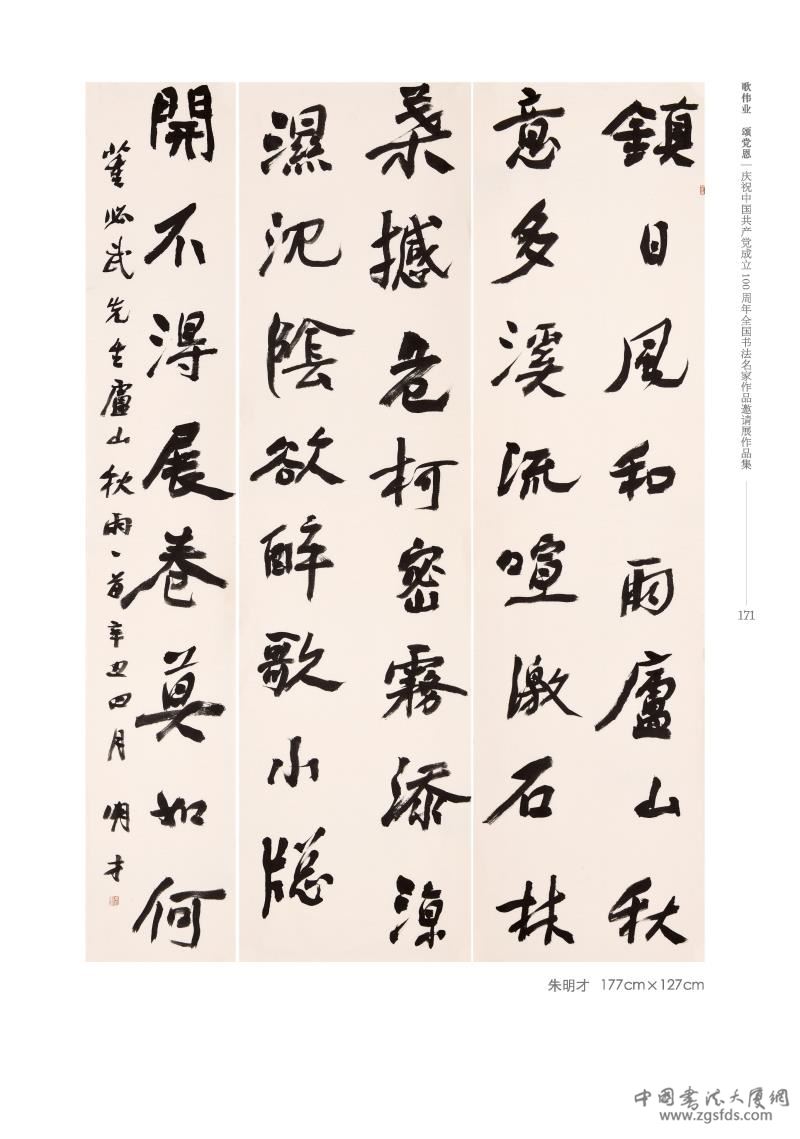 鎮日風和雨廬山秋
意多溪流喧激石林
葉撼危柯密霧添涼
濕沉陰欲醉歌小牕
開不得展卷莫如何
董必武先生廬山秋雨一首辛丑四月 明才
歌伟业 颂党恩｜庆祝中国共产党成立100周年全国书法名家作品邀请展作品集
171
朱明才 177cm×127cm
中國書法大厦網
www.zgsfds.com